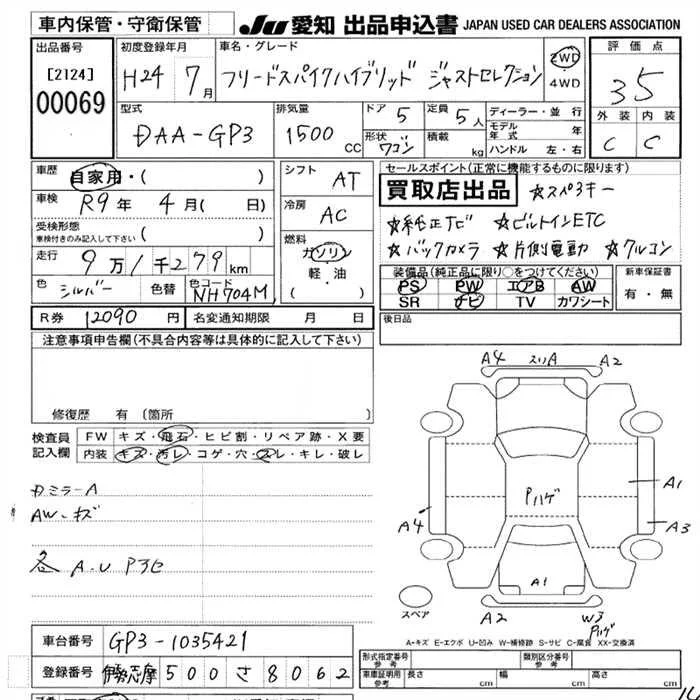 車内保管・守衛保管 JU 愛知 出品申込書 JAPAN USED CAR DEALERS ASSOCIATION
出品番号 初度登録年月 車名・グレード 評価点
[2124] H24 7月 フリードスパイクハイブリッド ジャストセレクション 2WD・4WD 3.5
00069
型式 排気量 ドア 5 定員 5人 ディーラー・並行 外装 内装
DAA-GP3 1500 CC 形状 ワゴン 積載 kg モデル年式 年 C C
ハンドル 左・右
車歴 自家用・( ) シフト AT セールスポイント(正常に機能するものに限り)
車検 R9年 4月( 日) 冷房 AC 買取店出品 ☆スペ3キー
受検形態 ☆純正TV ☆ビルトインETC
車検付きのみ記入して下さい ( ) 燃料 ☆バックカメラ ☆片側電動 ☆クルコン
走行 9万1千279km ガソリン 軽・油 ( )
装備品(純正品に限り○をつけてください) 新車保証書
色 シルバー 色替 色コード NH704M PS PW エアB AW 有・無
SR ナビ TV カワシート
R券 12090円 名変通知期限 月 日 後日品
注意事項申告欄(不具合内容等は具体的に記入して下さい)
修復歴 有 (箇所
検査員記入欄 FW キズ・飛石・ヒビ割・リペア跡・X要
内装 キズ・汚レ・コゲ・穴・スレ・キレ・破レ
A4 スリA A2
カミラーA
AW-キズ
各 A.U Pアセ
Pハゲ
A1
A3
A4
A1
スペア
A2 W3
Pハゲ
A・キズ E・エクボ U・凹み W・補修跡 S・サビ C・腐食 XX・交換済
車台番号 GP3-1035421 形式指定番号 参考 類別区分番号 参考
登録番号 伊勢志摩 500 さ 8062 車両証明用 参考 長さ cm 幅 cm 高さ cm